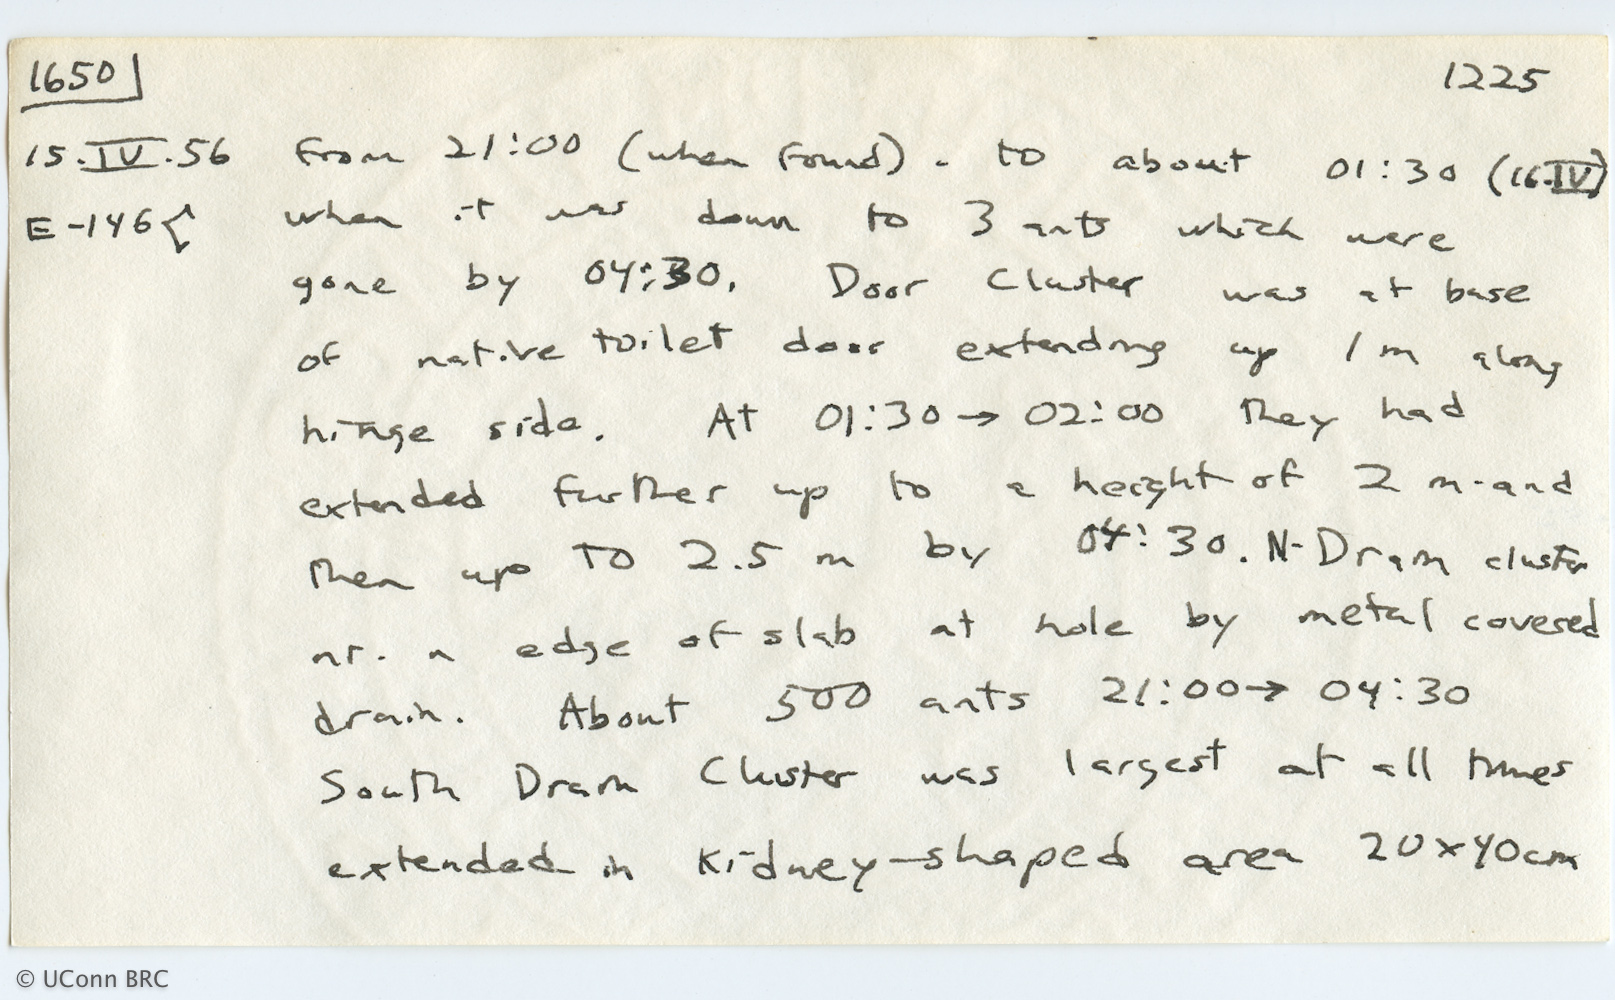 1650 1225
15.IV.56 From 21:00 (when found). to about 01:30 (16.IV)
E-146 when it was down to 3 ants which were
gone by 04:30. Door Cluster was at base
of native toilet door extending up 1 m along
hinge side. At 01:30 → 02:00 they had
extended further up to a height of 2 m. and
then up to 2.5 m by 04:30. N-Drain cluster
nr. n edge of slab at hole by metal covered
drain. About 500 ants 21:00 → 04:30
South Drain Cluster was largest at all times
extended in kidney-shaped area 20x40cm
© UConn BRC